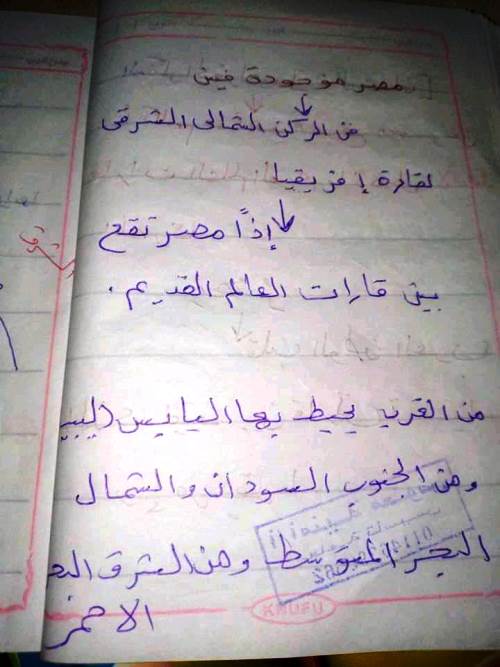 مصر موجودة فين
من الركن الشمالى الشرقى
لقارة إفريقيا
إذاً مصر تقع
بين قارات العالم القديم .
من الغرب يحيط بها اليابس (ليبيـ
ومن الجنوب السودان والشمال
البحر المتوسط ومن الشرق البحـ
الاحمر
KHUFU